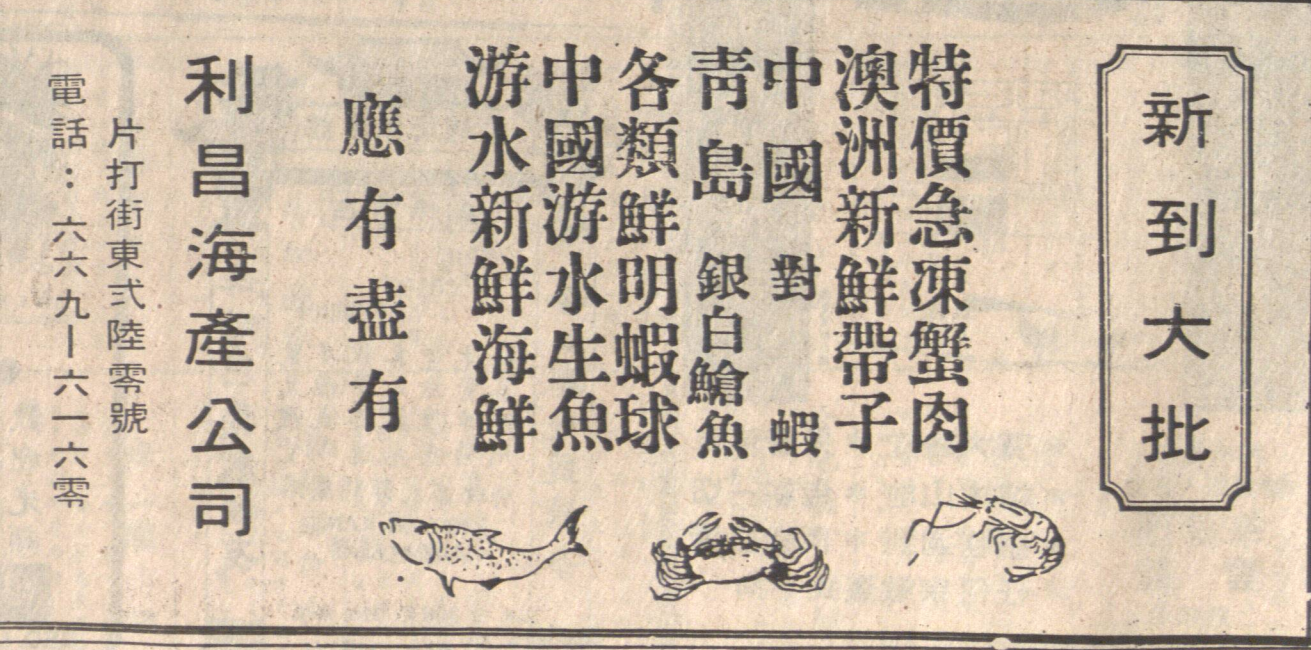 新到大批
特價急凍蟹肉
澳洲新鮮帶子
中國對蝦
青島銀白鱠魚
各類鮮明蝦球
中國游水生魚
游水新鮮海鮮
應有盡有
利昌海產公司
片打街東弍陸零號
電話:六六九—六一六零